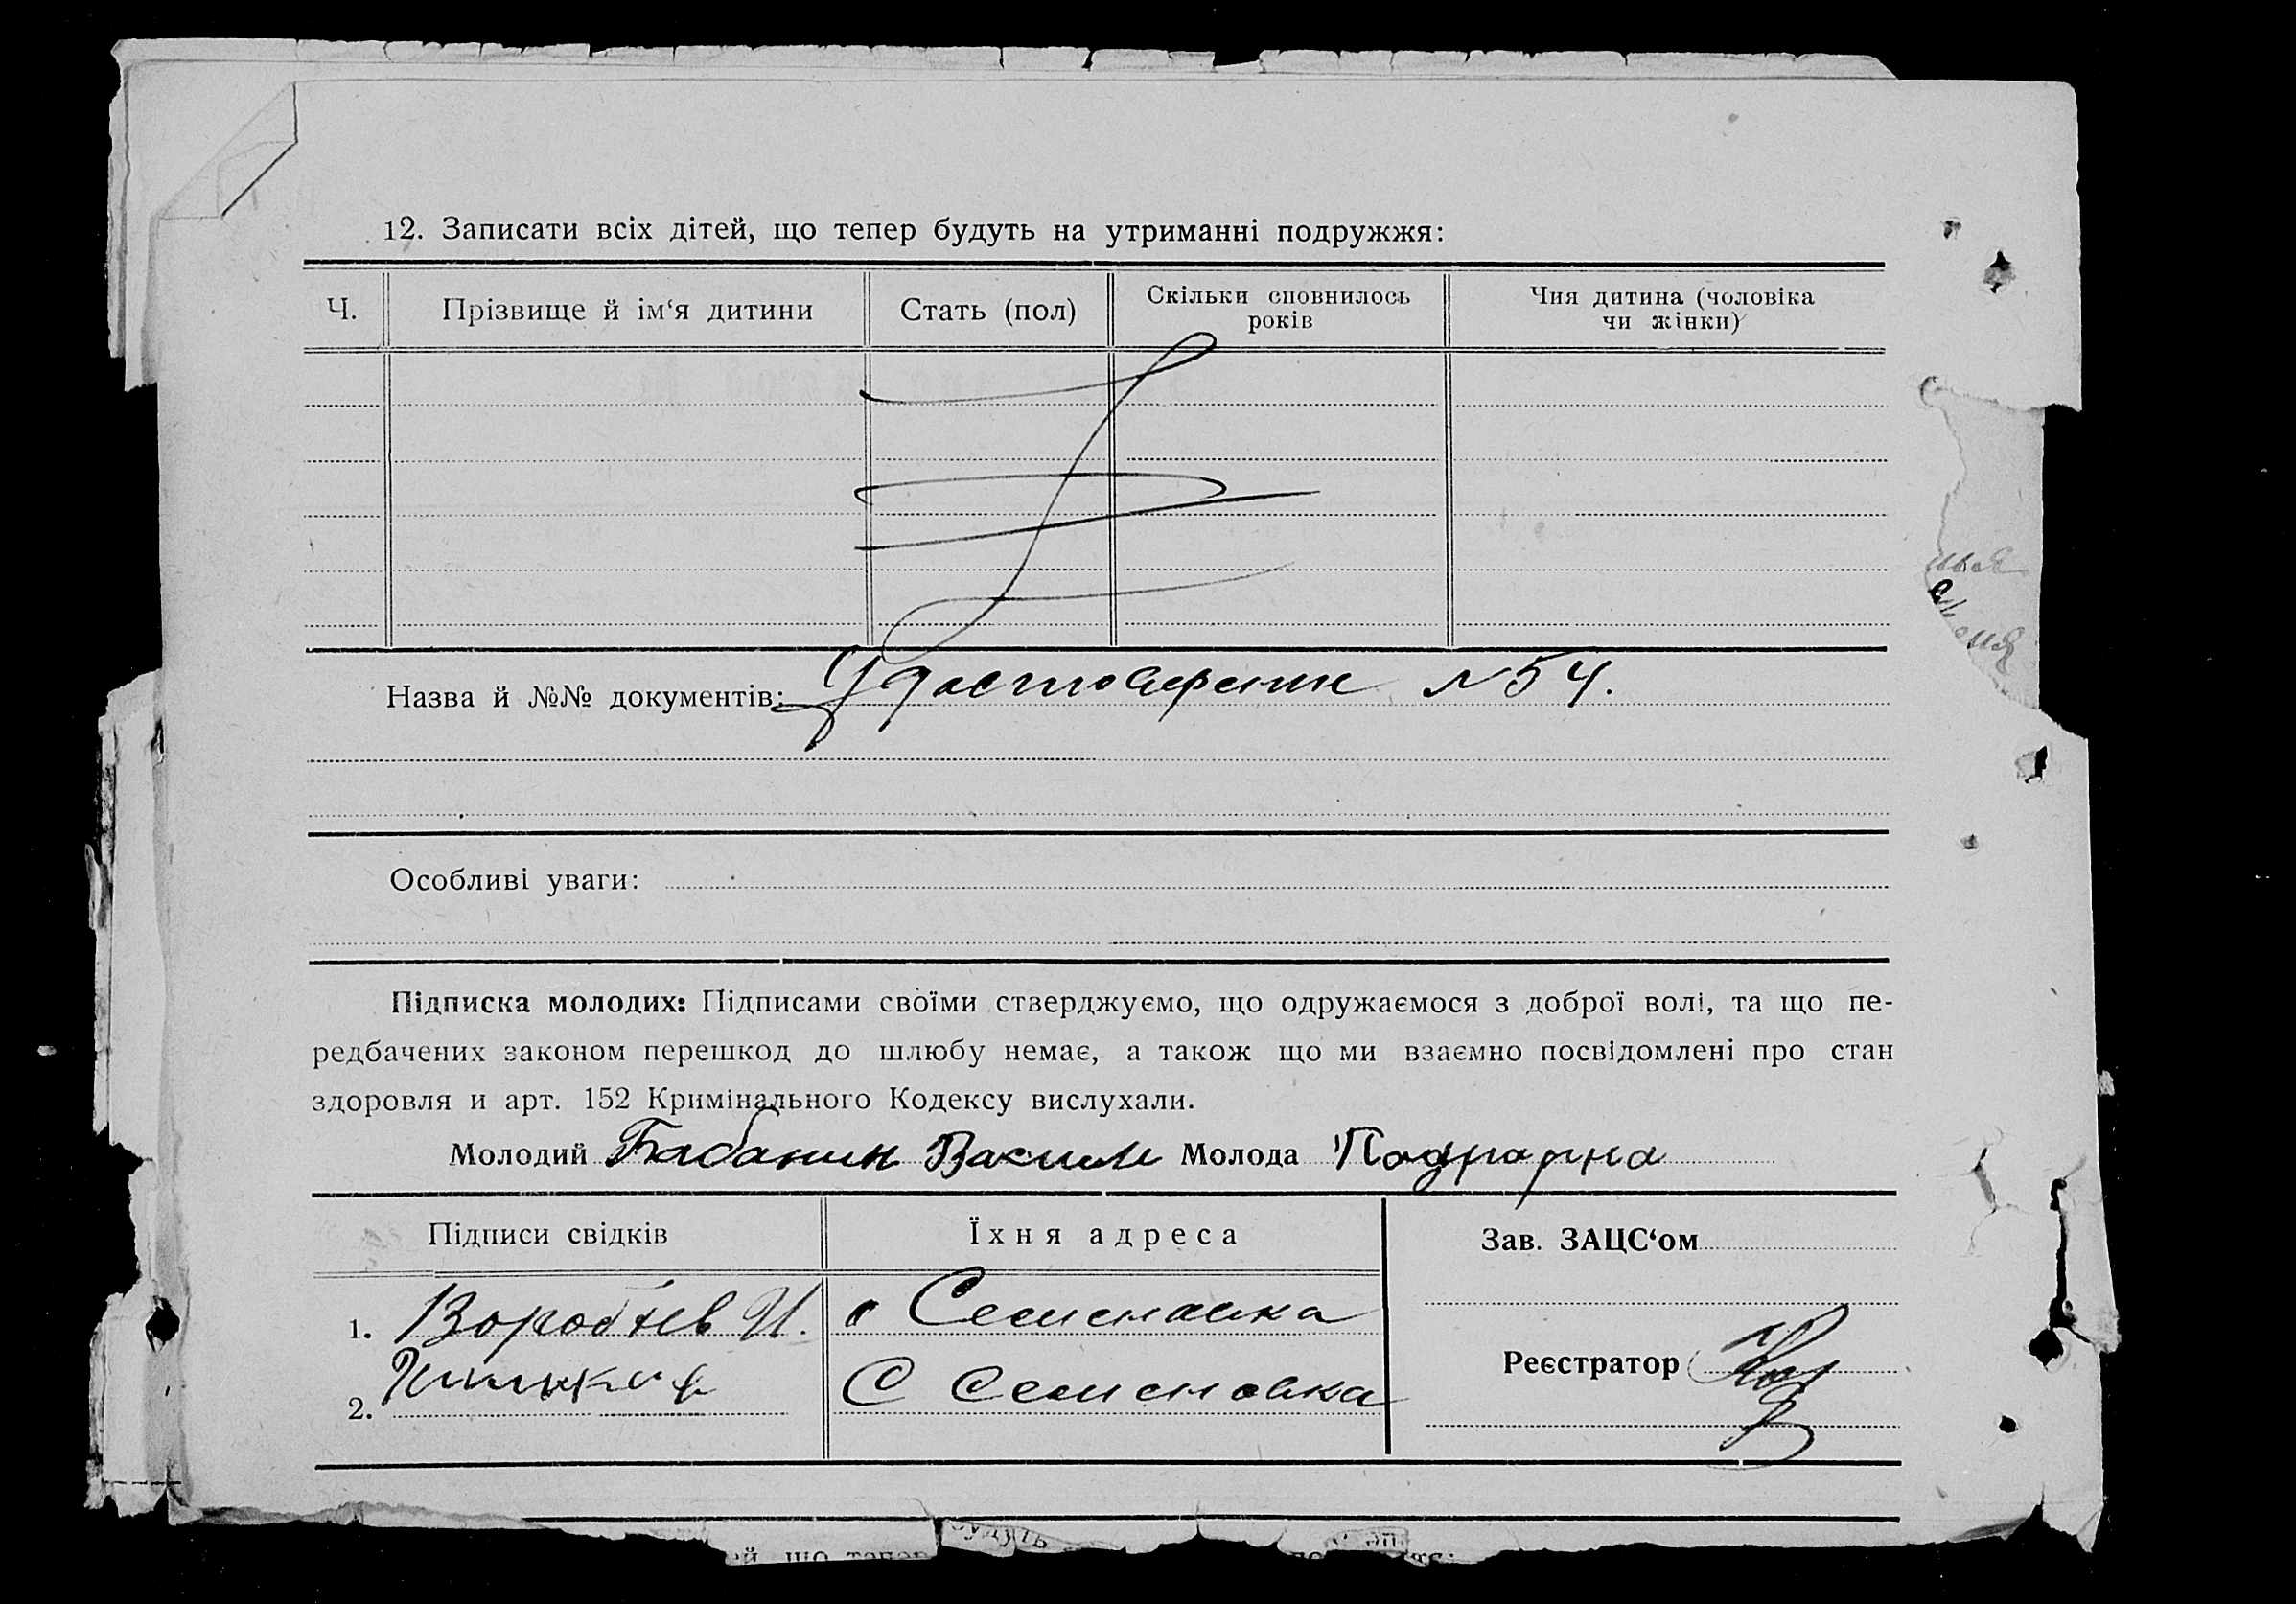 12. Записати всіх дітей, що тепер будуть на утриманні подружжя:
Ч. Прізвище й ім‘я дитини Стать (пол) Скільки сповнилось років Чия дитина (чоловіка чи жінки)
Назва й №№ документів: Удостоверение N 54.
Особливі уваги:
Підписка молодих: Підписами своїми стверджуємо, що одружаємося з доброї волі, та що пе-
редбачених законом перешкод до шлюбу немає, а також що ми взаємно посвідомлені про стан
здоровля и арт. 152 Кримінального Кодексу вислухали.
Молодий Бабанин Молода
Підписи свідків Їхня адреса Зав. ЗАЦС‘ом
1. Воробьев И. с Семеновка
Реєстратор
2. С Семеновка